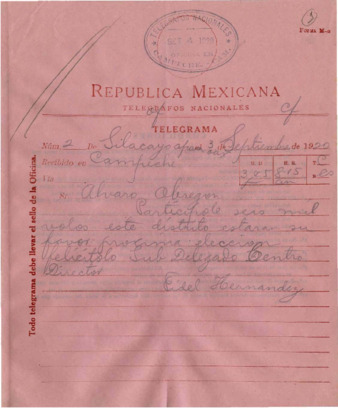 TELEGRAFOS NACIONALES
SEP 4 1920
Forma M-2
REPUBLICA MEXICANA
TELEGRAFOS NACIONALES
TELEGRAMA
Núm. 2 De Silacayoapan 3 de Septiembre de 1920
Recibido en Campeche
Alvaro Obregon
Participole seis mil
votos este distrito estaran su
favor proxima eleccion
felicitolo Sub Delegado Centro
Director
Fidel Hernandez
Todo telegrama debe llevar el sello de la Oficina.